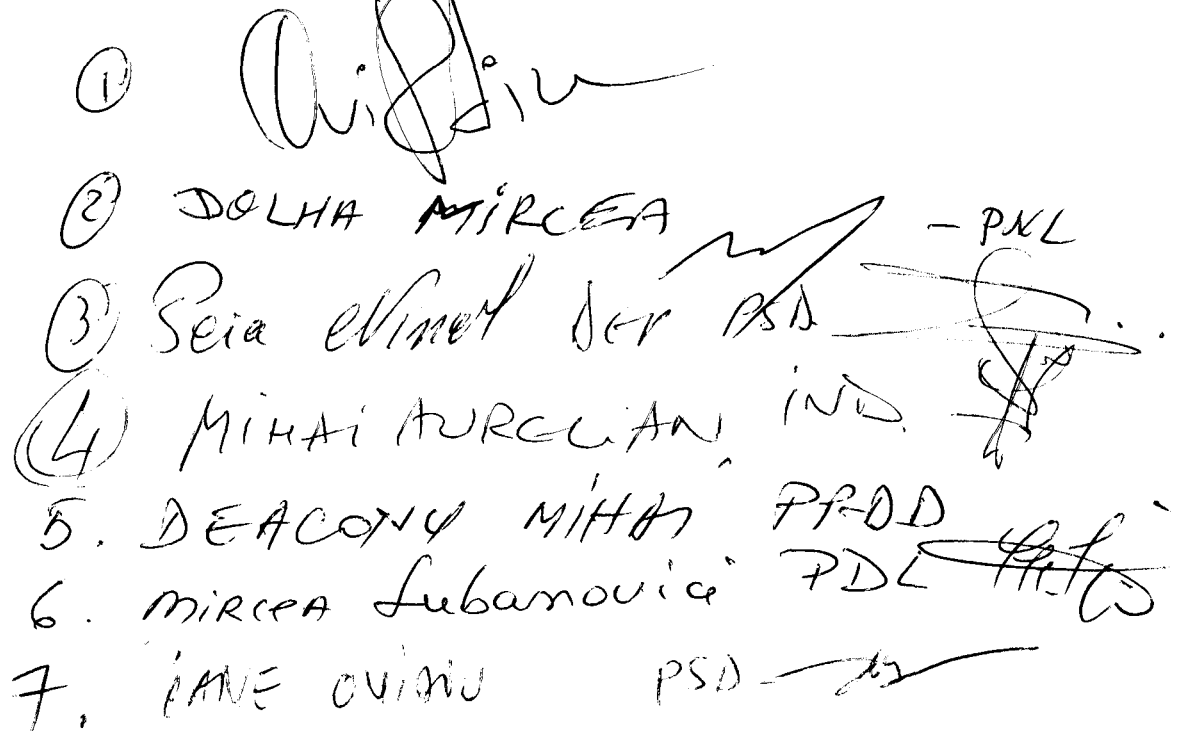 1
2 DOLHA MIRCEA - PNL
3 Seia Ninel Dep PSD
4 MIHAI AURELIAN, IND.
5. DEACONU MIHAI PP-DD
6. MIRCEA Lubanovici PDL
7. IANE OVIDIU PSD